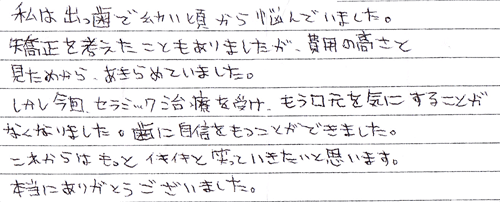 私は出っ歯で幼い頃から悩んでいました。
矯正を考えたこともありましたが、費用の高さと
見ためから、あきらめていました。
しかし今回、セラミック治療を受け、もう口元を気にすることが
なくなりました。歯に自信をもつことができました。
これからはもっとイキイキと笑っていきたいと思います。
本当にありがとうございました。